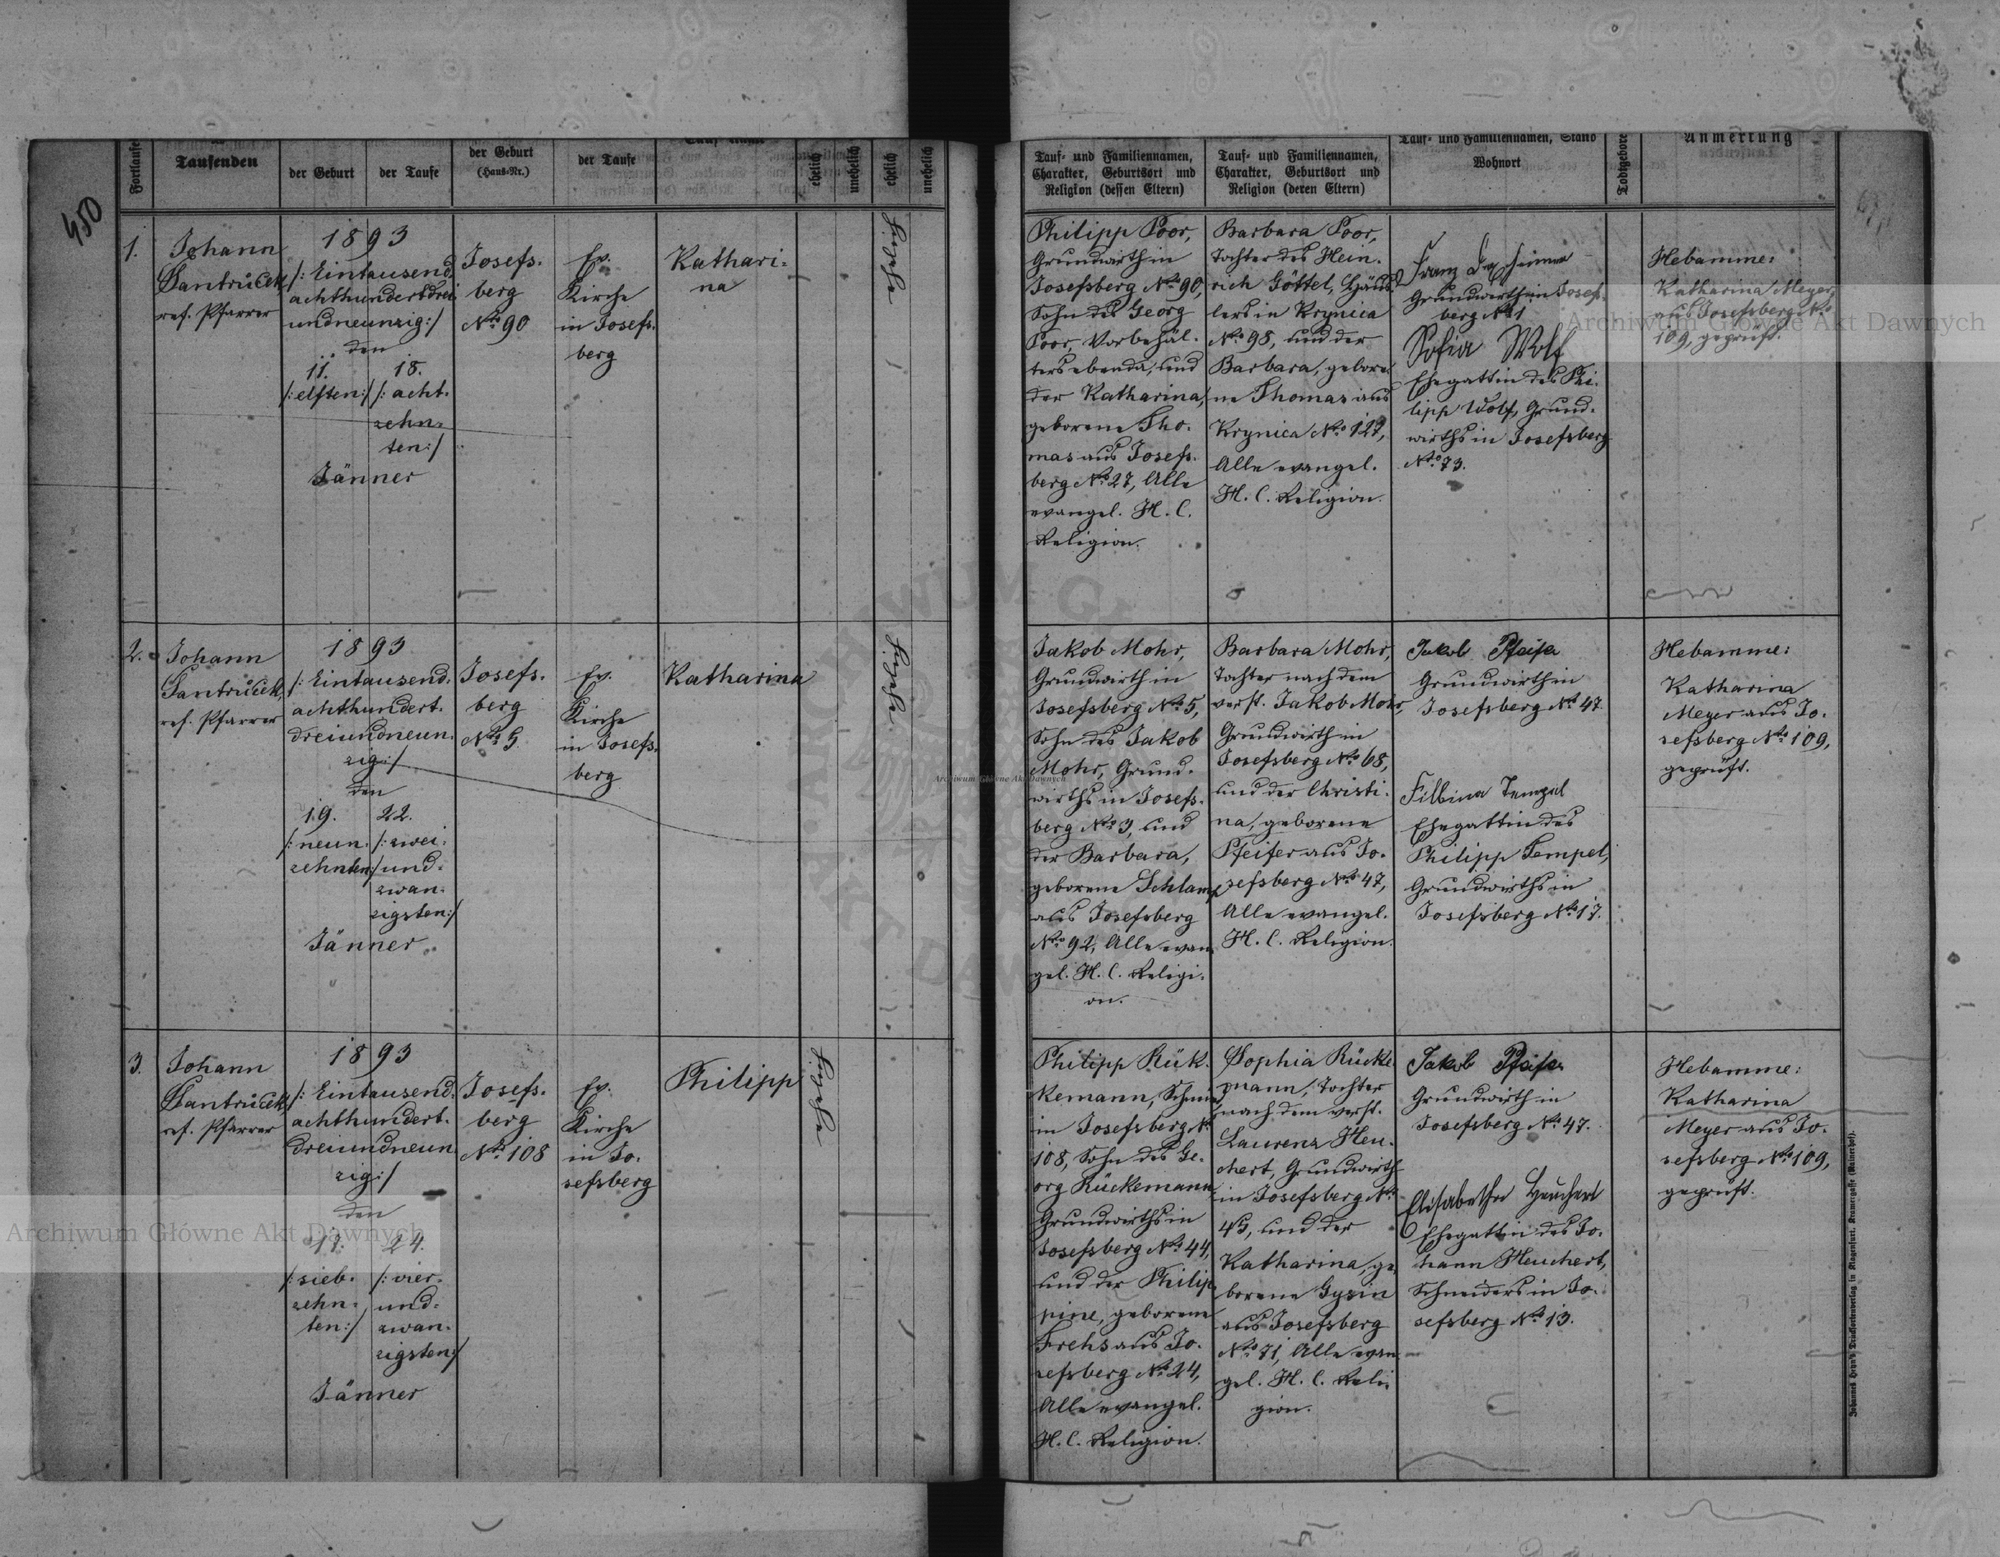 450
Fortlaufe
Taufenden
der Geburt
der Taufe
der Geburt
(Haus-Nr.)
der Taufe
ehelich
unehelich
ehelich
unehelich
1.
Johann
Jantrůček,
ref. Pfarrer
1893
/: Eintausend
achthundertdrei
undneunzig :/
den
11.
/: elften :/
18.
/: acht-
zehn-
ten :/
Jänner
Josefs-
berg
No 90
Ev.
Kirche
in Josefs-
berg
Kathari-
na
2.
Johann
Jantrůček,
ref. Pfarrer
1893
/: Eintausend
achthundert-
dreiundneun-
zig :/
den
19.
/: neun-
zehnten :/
22.
/: zwei-
und-
zwan-
zigsten :/
Jänner
Josefs-
berg
No 5
Ev.
Kirche
in Josefs-
berg
Katharina
3.
Johann
Jantrůček
ref. Pfarrer
1893
/: Eintausend
achthundert-
dreiundneun-
zig :/
den
17.
/: sieb-
zehn-
ten :/
24.
/: vier-
und-
zwan-
zigsten :/
Jänner
Josefs-
berg
No 108
Ev.
Kirche
in Jo-
sefsberg
Philipp
Tauf- und Familiennamen,
Charakter, Geburtsort und
Religion (dessen Eltern)
Tauf- und Familiennamen,
Charakter, Geburtsort und
Religion (deren Eltern)
Tauf- und Familiennamen, Stand
Wohnort
Todtgebore
Anmerkung
Philipp Poor,
Grundwirth in
Josefsberg No 90,
Sohn des Georg
Poor, Vorbehäl-
ters ebenda, und
der Katharina,
geborene Tho-
mas aus Josefs-
berg No 27, Alle
evangel. H. C.
Religion.
Barbara Poor,
Tochter des Hein-
rich Göttel, Häus-
lers in Krynica
No 98, und der
Barbara, gebore-
ne Thomas aus
Krynica No 127,
Alle evangel.
H. C. Religion.
Franz
Grundwirth in Josefs-
berg No 1
Sofia Wolf
Ehegattin des Phi-
lipp Wolf, Grund-
wirths in Josefsberg
No 73.
Hebamme:
Katharina Meyer,
aus Josefsberg No
109, geprüft.
Jakob Mohr,
Grundwirth in
Josefsberg No 5,
Sohn des Jakob
Mohr, Grund-
wirths in Josefs-
berg No 3, und
der Barbara,
geborene Schlamp
aus Josefsberg
No 92, Alle evan-
gel. H. C. Religi-
on.
Barbara Mohr,
Tochter nach dem
verst. Jakob Mohr,
Grundwirth in
Josefsberg No 68,
und der Christi-
na, geborene
Pfeifer aus Jo-
sefsberg No 47,
Alle evangel.
H. C. Religion.
Jakob Pfeifer
Grundwirth in
Josefsberg No 47
Filbina Tempel
Ehegattin des
Philipp Tempel,
Grundwirths in
Josefsberg No 17.
Hebamme:
Katharina
Meyer aus Jo-
sefsberg No 109,
geprüft.
Philipp Rük-
kemann, Schmied
in Josefsberg No
108, Sohn des Ge-
org Rückemann
Grundwirths in
Josefsberg No 44,
und der Philip-
pine, geborene
Frehs aus Jo-
sefsberg No 24,
Alle evangel.
H. C. Religion.
Sophia Rücke-
mann, Tochter
nach dem verst.
Laurenz Heu-
chert, Grundwirth
in Josefsberg No
45, und der
Katharina, ge-
borene Gysin
aus Josefsberg
No 71, Alle evan-
gel. H. C. Reli-
gion.
Jakob Pfeifer
Grundwirth in
Josefsberg No 47.
Elisabetha Heuchert
Ehegattin des Jo-
hann Heuchert,
Schneiders in Jo-
sefsberg No 13.
Hebamme:
Katharina
Meyer aus Jo-
sefsberg No 109,
geprüft.
Johannes Heyn's Drucksortenverlag in Klagenfurt, Kramergasse (Rainerhof).
Archiwum Główne Akt Dawnych
Archiwum Główne Akt Dawnych
Archiwum Główne Akt Dawnych